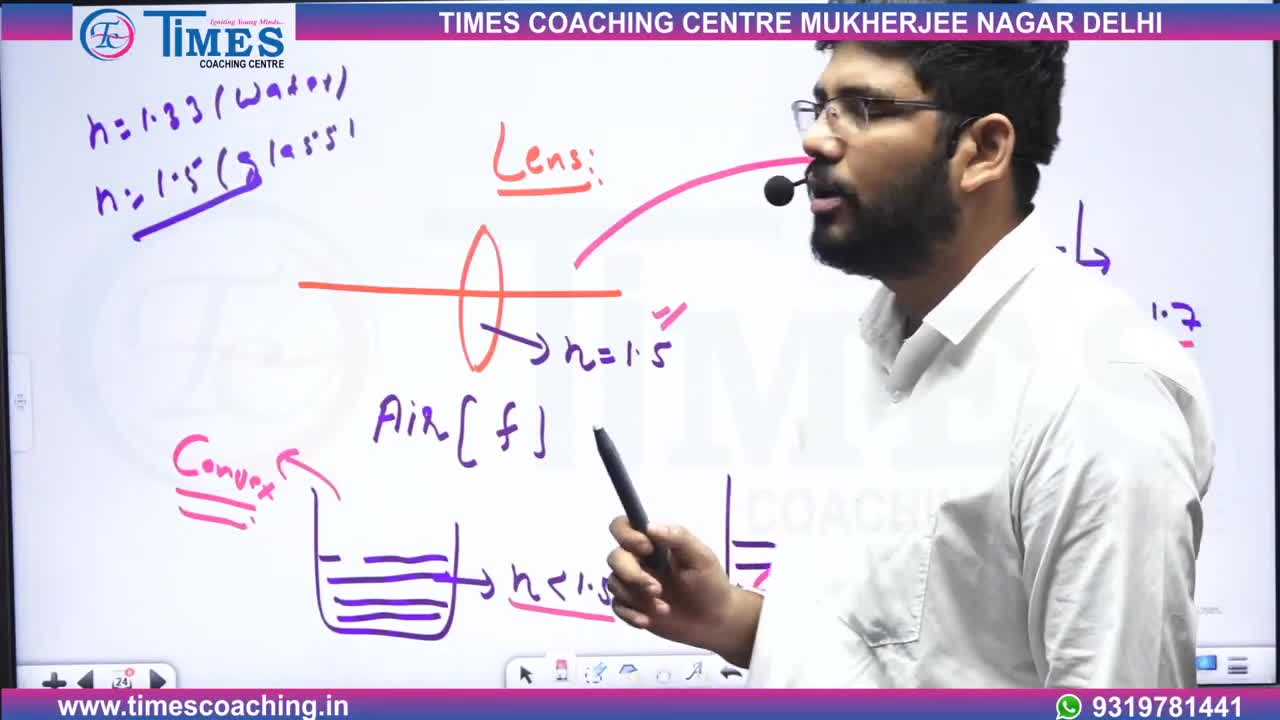 Igniting Young Minds...
TIMES
COACHING CENTRE
TIMES COACHING CENTRE MUKHERJEE NAGAR DELHI
n=1.33 (Water)
n=1.5 (glass)
Lens:
n=1.5
1.7
Air [f]
Convex
n<1.5
24
www.timescoaching.in
9319781441